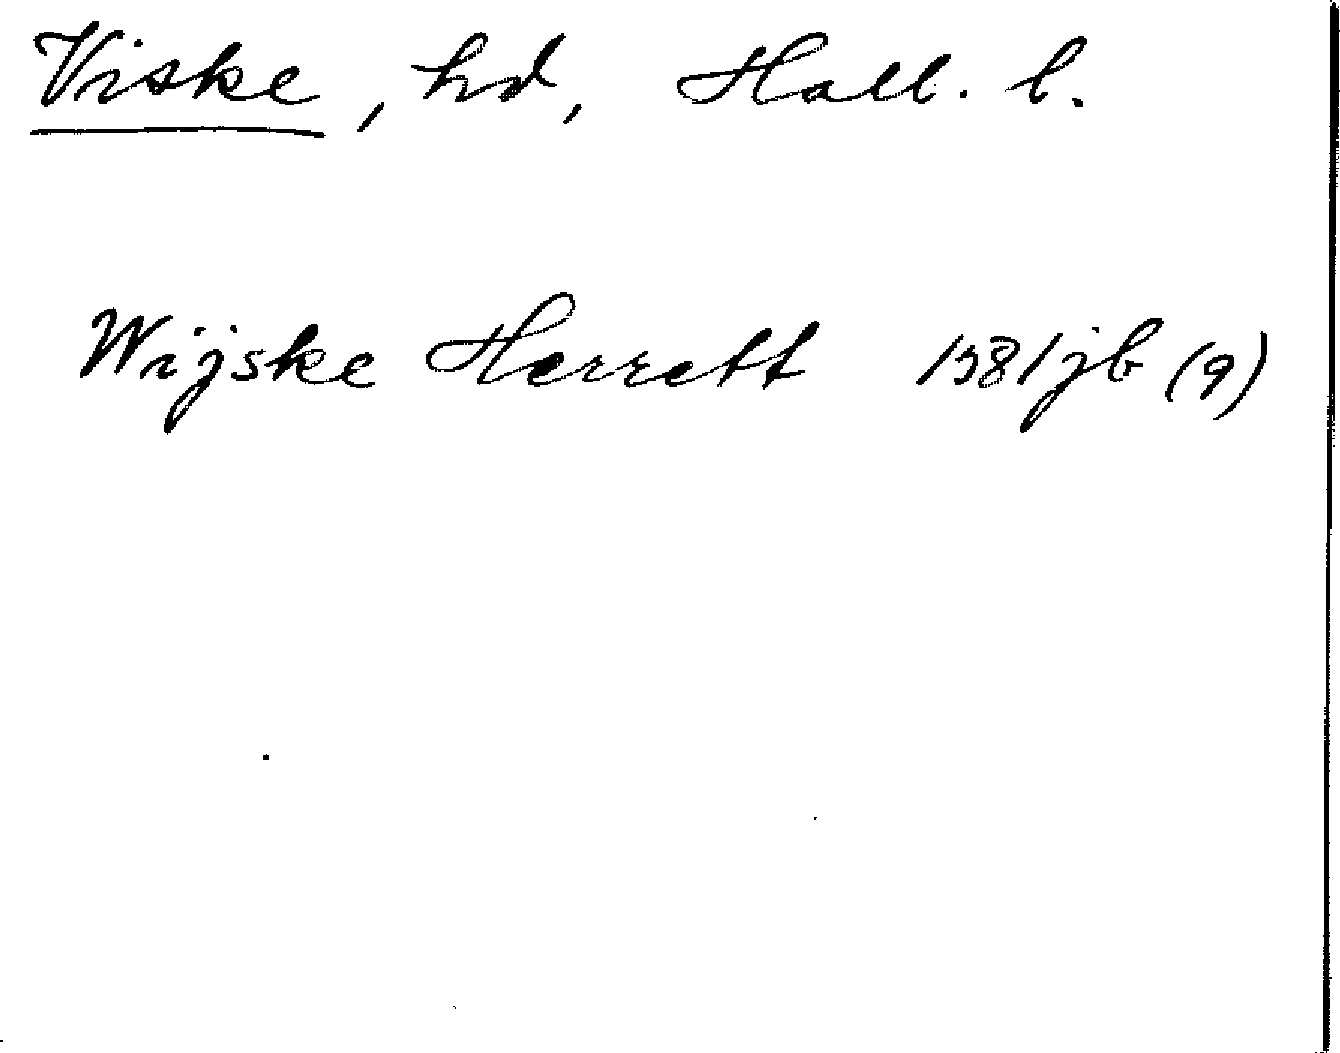 Viske, hd, Hall. l.
Wijske Herrett 1581 jb (9)